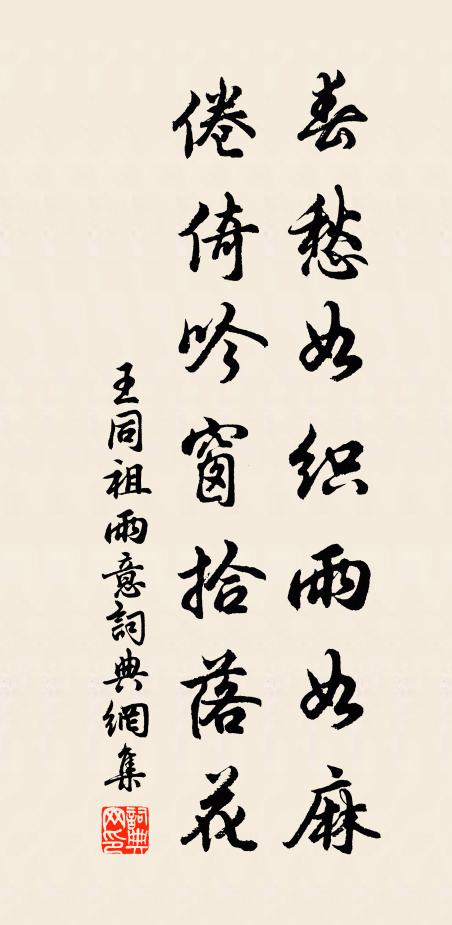 春愁如织雨如麻
倦倚吟窗拾落花
王同祖雨意詞典網集
詞典网印